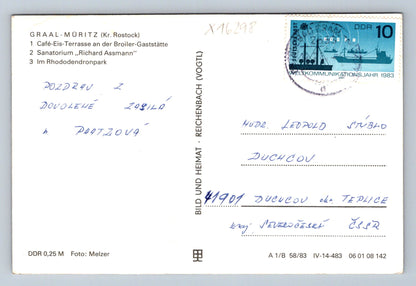 X16298
GRAAL-MÜRITZ (Kr. Rostock)
1 Café-Eis-Terrasse an der Broiler-Gaststätte
2 Sanatorium „Richard Assmann"
3 Im Rhododendronpark
DDR 10
WELTKOMMUNIKATIONSJAHR 1983
POZDRAV Z
DOVOLENÉ ZASÍLÁ
BILD UND HEIMAT · REICHENBACH (VOGTL)
MUDR. LEOPOLD
DUCHCOV
41901 DUCHCOV okr. TEPLICE
kraj SEVEROČESKÝ ČSSR
DDR 0,25 M Foto: Melzer
A 1/B 58/83 IV-14-483 06 01 08 142